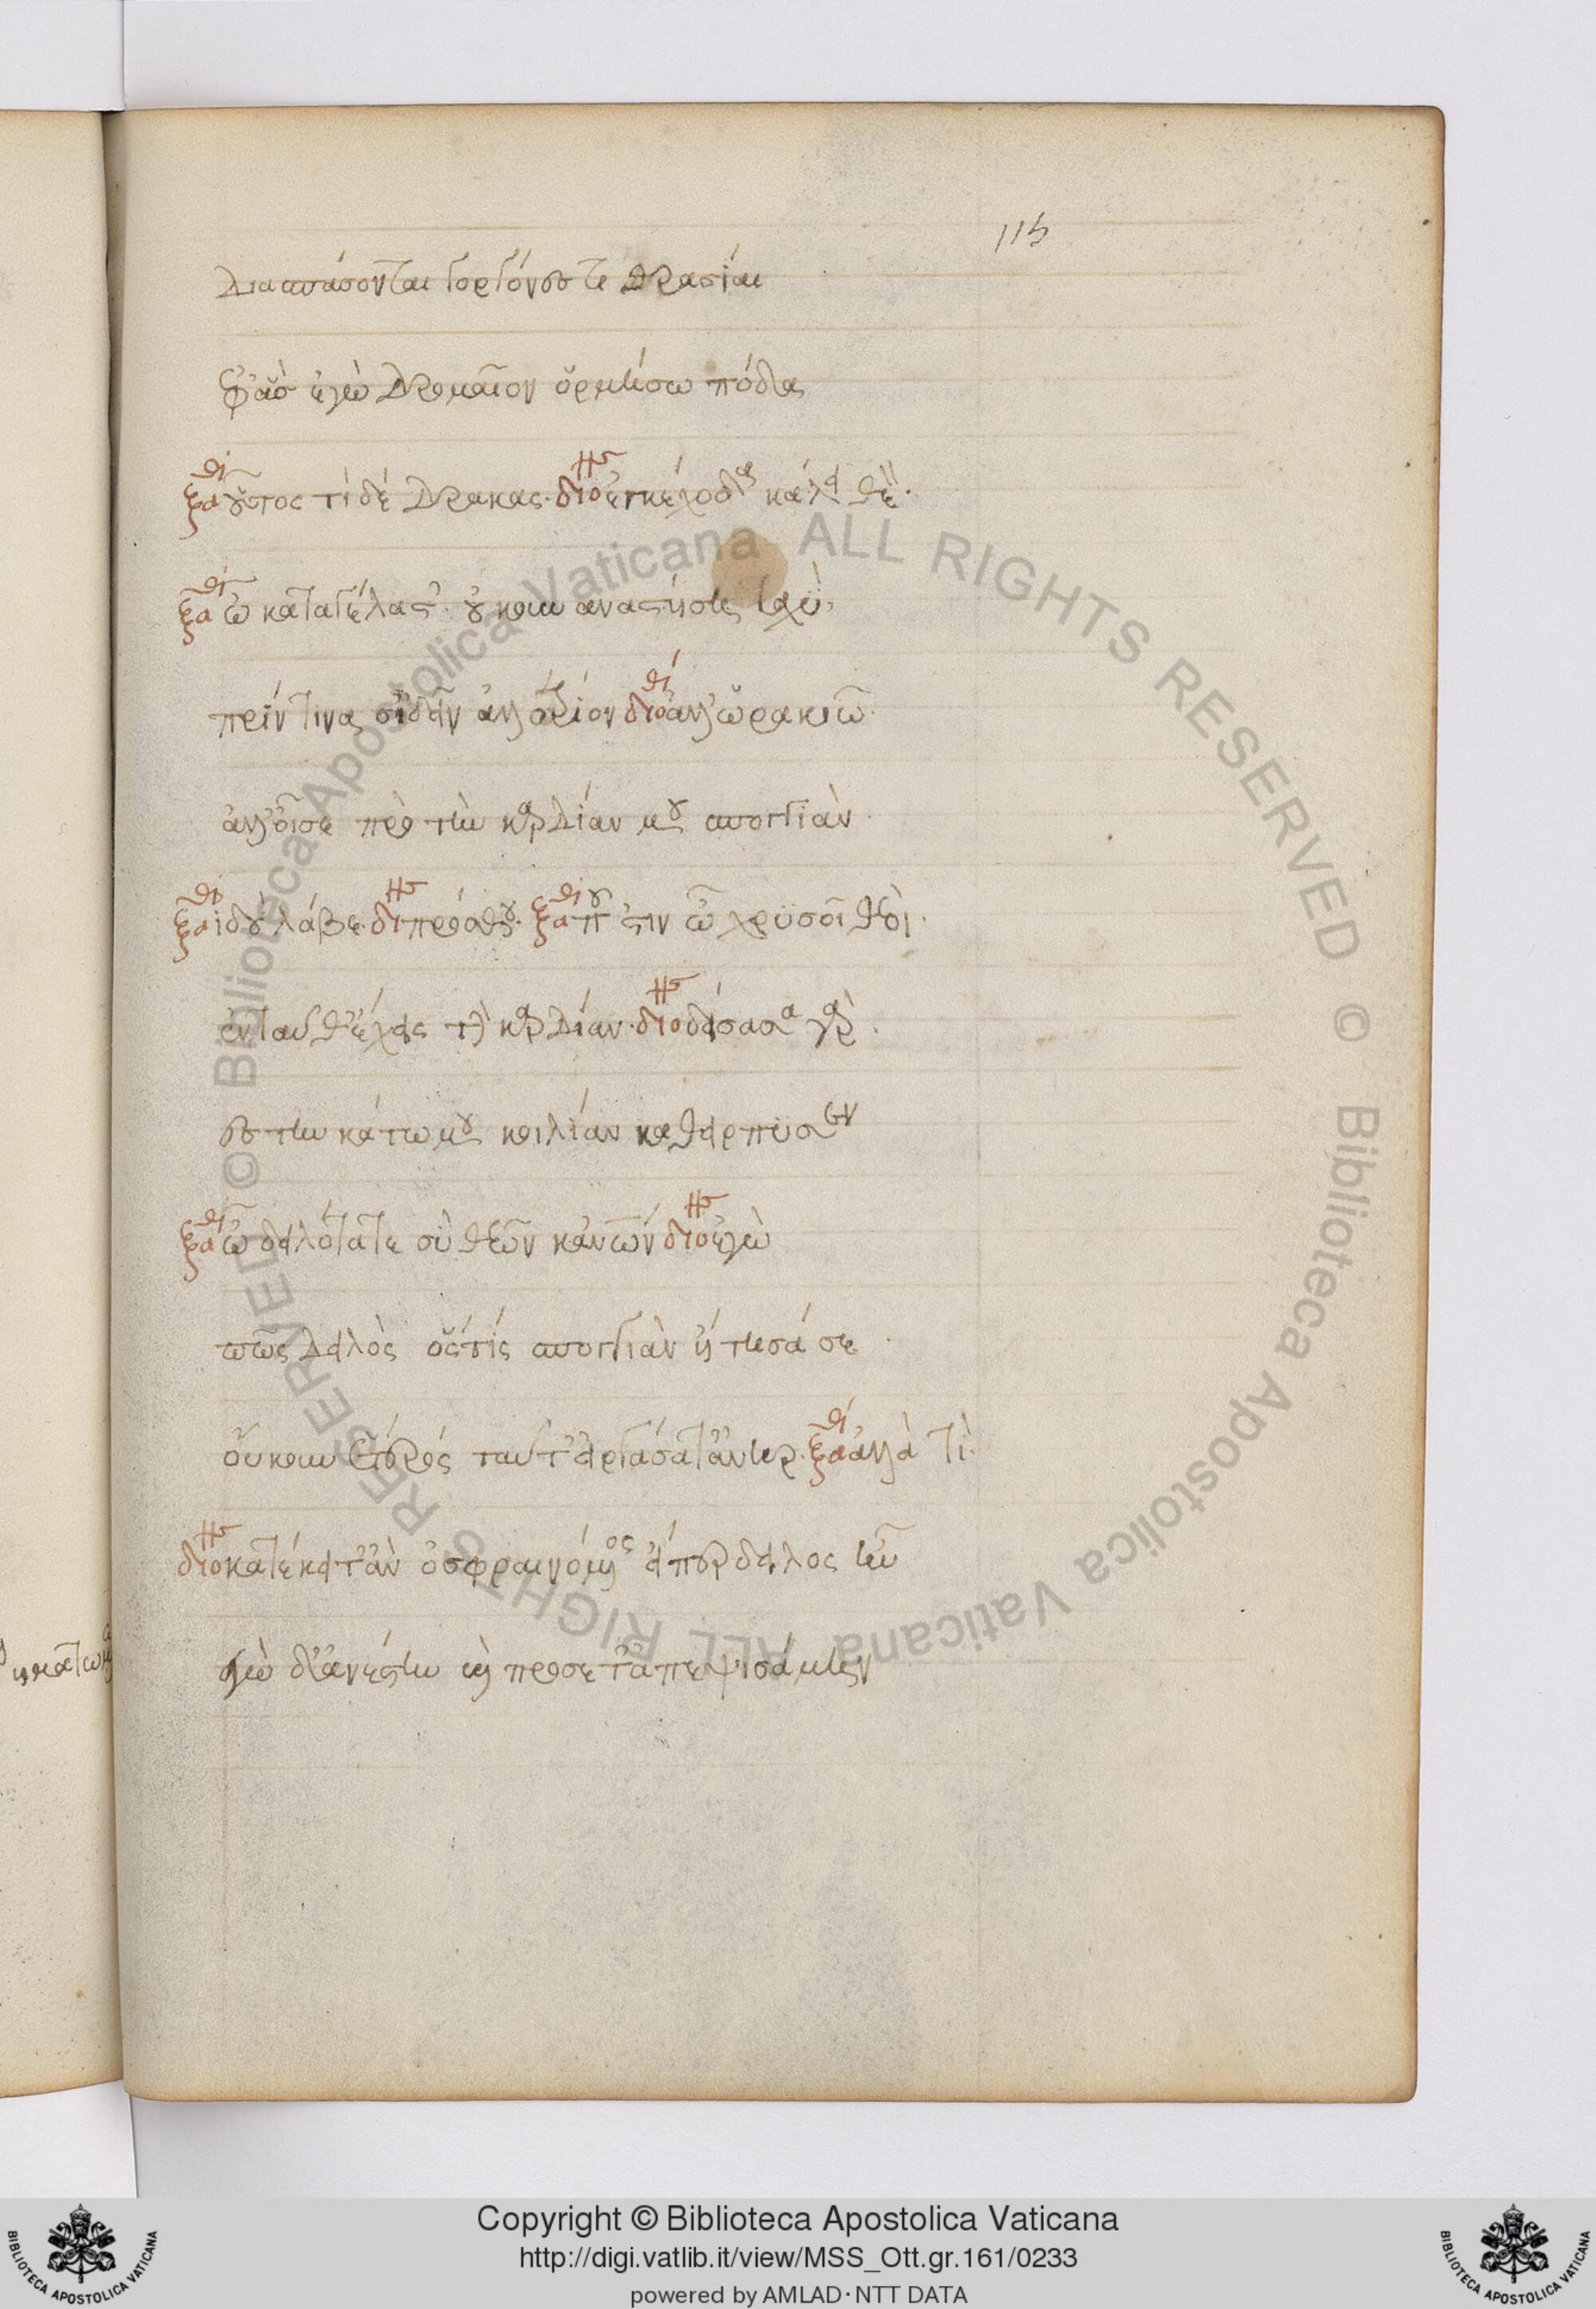 115
διασπάσονται γοργόνες τιθράσιαι
ἐφ' ἃς ἐγὼ δρομαῖον ὁρμήσω πόδα
ξαν οὗτος τί δέδρακας. διο ἐγκέχοδα κάλει θεόν.
ξαν ὦ καταγέλαστ'. οὔκουν ἀναστήσει ταχὺ
πρίν τινά σ' ἰδεῖν ἀλλότριον διο ἀλλ' ὡρακιῶ.
ἀλλ' οἶσε πρὸς τὴν καρδίαν μου σπογγιάν.
ξαν ἰδοὺ λάβε. διο προσθοῦ. ξαν ποῦ 'στιν ὦ χρυσοῖ θεοί.
ἐνταῦθ' ἔχεις τὴν καρδίαν. διο δείσασα γὰρ.
εἰς τὴν κάτω μου κοιλίαν καθείρπυσεν
ξαν ὦ δειλότατε σὺ θεῶν κἀνθρώπων διο ἐγὼ
πῶς δειλὸς ὅστις σπογγιὰν ᾔτησά σε.
οὔκουν ἕτερός ταῦτ' εἰργάσατ' ἀνήρ. ξαν ἀλλὰ τί.
διο κατέκειτ' ἂν ὀσφραινόμενος εἴπερ δειλος ἦν
ἐγὼ δ' ἀνέστην καὶ προσέτ' ἀπεψησάμην
Copyright © Biblioteca Apostolica Vaticana
http://digi.vatlib.it/view/MSS_Ott.gr.161/0233
powered by AMLAD·NTT DATA
BIBLIOTECA APOSTOLICA VATICANA
BIBLIOTECA APOSTOLICA VATICANA
© Biblioteca Apostolica Vaticana ALL RIGHTS RESERVED © Biblioteca Apostolica Vaticana ALL RIGHTS RESERVED